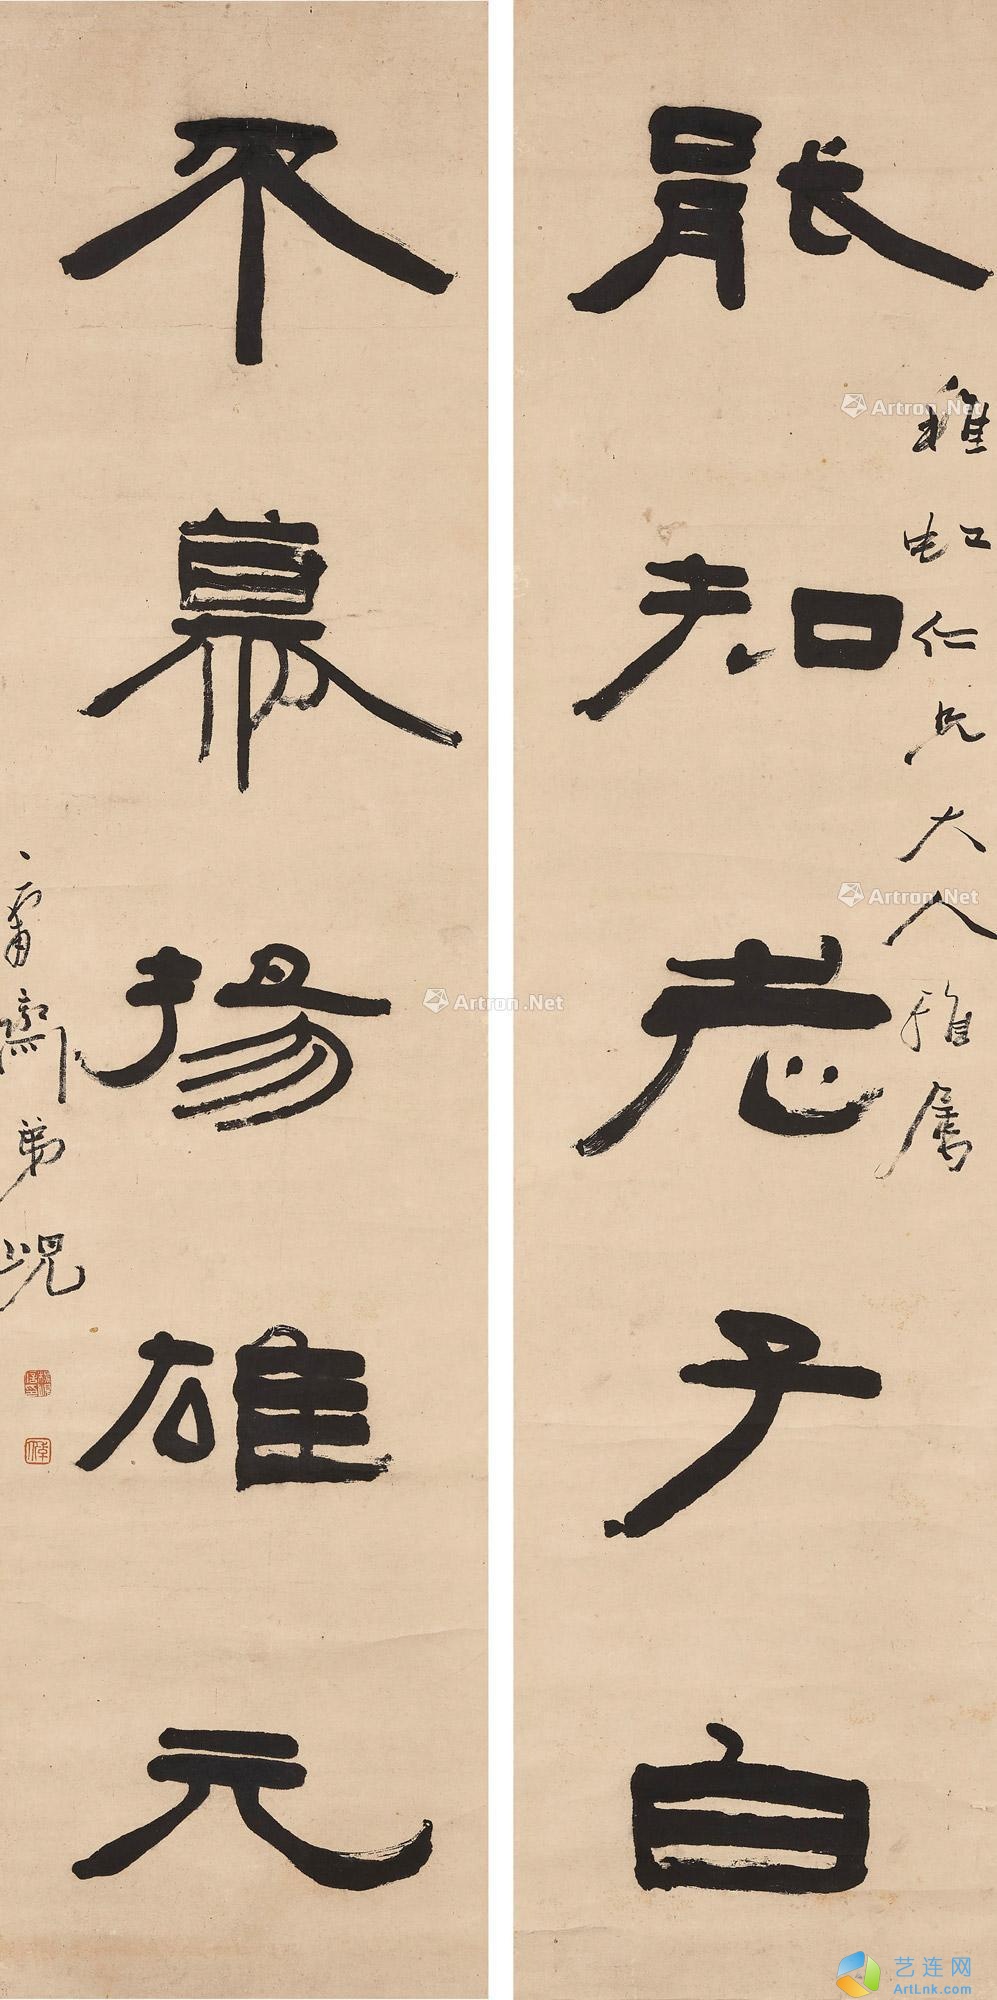 能知老子白
稚虹仁兄大人雅属
不慕扬雄元
甯斋弟
Artron.Net
Artron.Net
Artron.Net
艺连网
ArtLnk.com